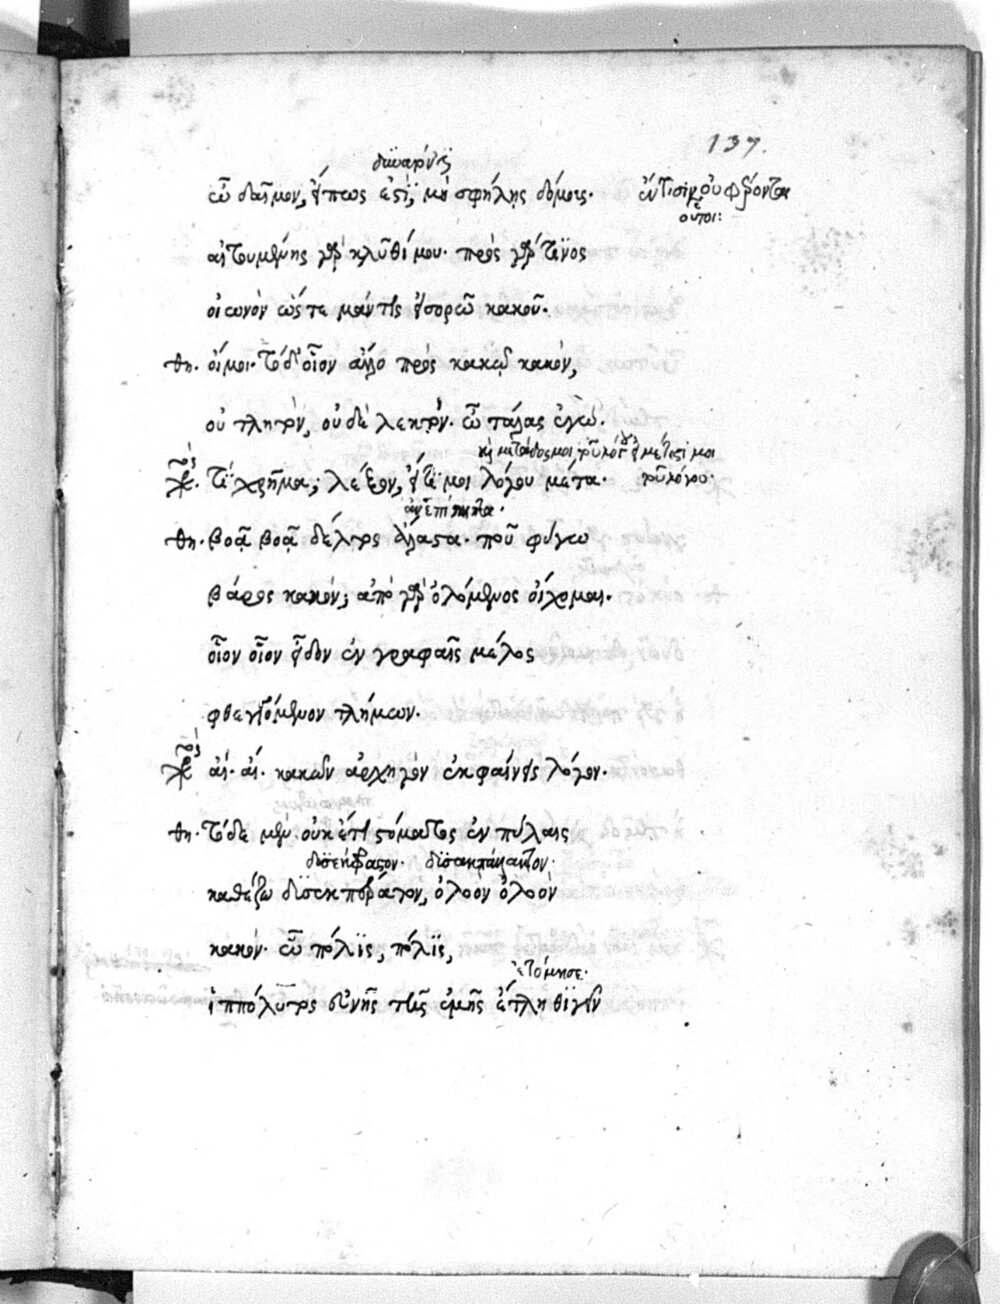 137.
ὦ δαῖμον, εἴπως ἐστὶ, μὴ σφήλῃς δόμους· ἔν τισιν οὐ φέρονται
οὗτοι:
αἰτουμένης δὲ κλῦθί μου· πρὸς γάρ τινος
οἰωνὸν ὥστε μάντις εἰσορῶ κακοῦ·
θη. οἴμοι· τόδ' οἷον ἄλλο πρὸς κακῷ κακὸν,
οὐ τλητὸν, οὐδὲ λεκτόν· ὦ τάλας ἐγώ.
χορὸς. τί χρῆμα; λέξον, εἴ τί μοι λόγου μέτα·
τοῦ λόγου·
θη. βοᾷ βοᾷ δέλτος ἄλαστα· ποῦ φύγω
βάρος κακῶν; ἀπὸ γὰρ ὀλόμενος οἴχομαι.
οἷον οἷον εἶδον ἐν γραφαῖς μέλος
φθεγγόμενον τλήμων.
χορὸς αἴ· αἴ· κακῶν ἀρχηγὸν ἐκφαίνεις λόγον.
θη. τόδε μὲν οὐκέτι στόματος ἐν πύλαις
δυσέκβατον·
καθέξω δυσεκπέρατον, ὀλοὸν ὀλοὸν
κακόν· ὦ πόλις, πόλις,
ἐτόλμησε·
ἱππόλυτος εὐνῆς τῆς ἐμῆς ἔτλη θιγεῖν